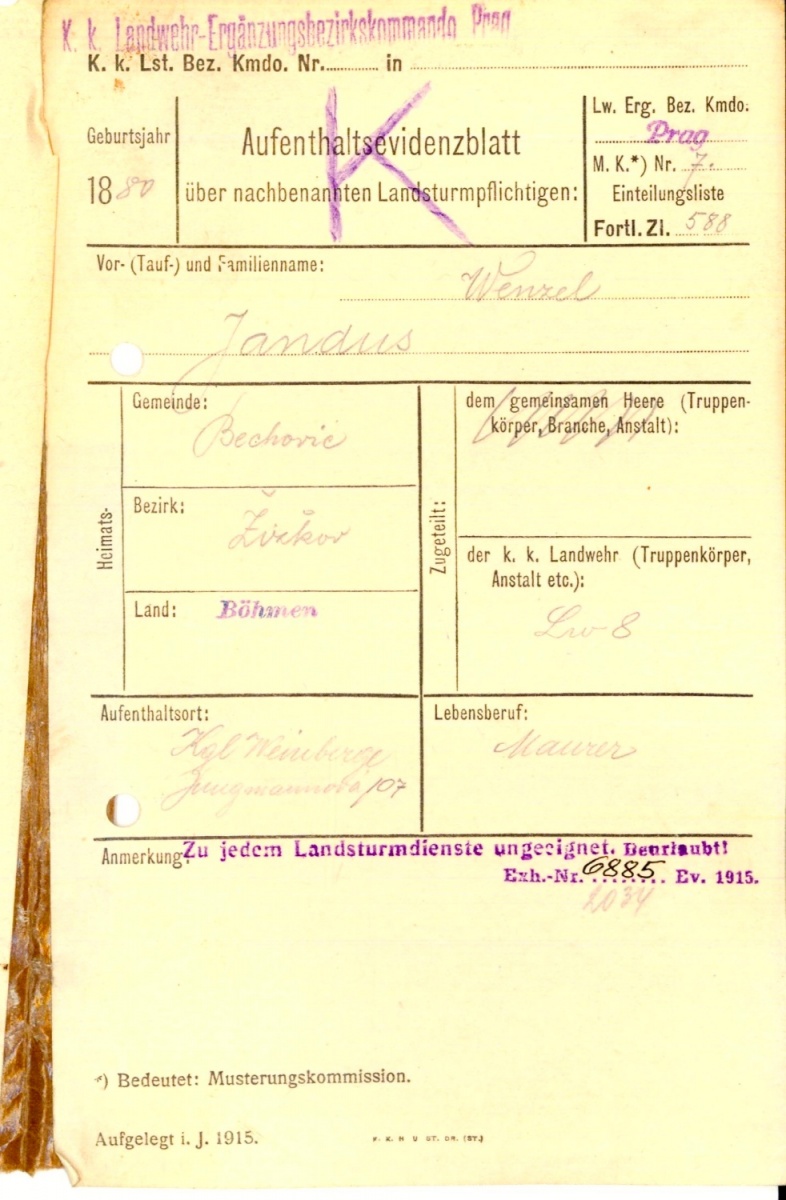 K. k. Landwehr-Ergänzungsbezirkskommando Prag
K. k. Lst. Bez. Kmdo. Nr. in
Geburtsjahr
1880
Aufenthaltsevidenzblatt
über nachbenannten Landsturmpflichtigen:
K
Lw. Erg. Bez. Kmdo.
Prag
M. K.*) Nr. 7.
Einteilungsliste
Fortl. Zl. 588
Vor- (Tauf-) und Familienname:
Wenzel
Jandus
Heimats-
Gemeinde:
Bechovic
Bezirk:
Žižkov
Land: Böhmen
Zugeteilt:
dem gemeinsamen Heere (Truppen-
körper, Branche, Anstalt):
der k. k. Landwehr (Truppenkörper,
Anstalt etc.):
Lw 8
Aufenthaltsort:
Kgl Weinberge
Jungmannova 107
Lebensberuf:
Maurer
Anmerkung: Zu jedem Landsturmdienste ungeeignet. Beurlaubt!
Exh.-Nr. 6885 Ev. 1915.
2034
*) Bedeutet: Musterungskommission.
Aufgelegt i. J. 1915.